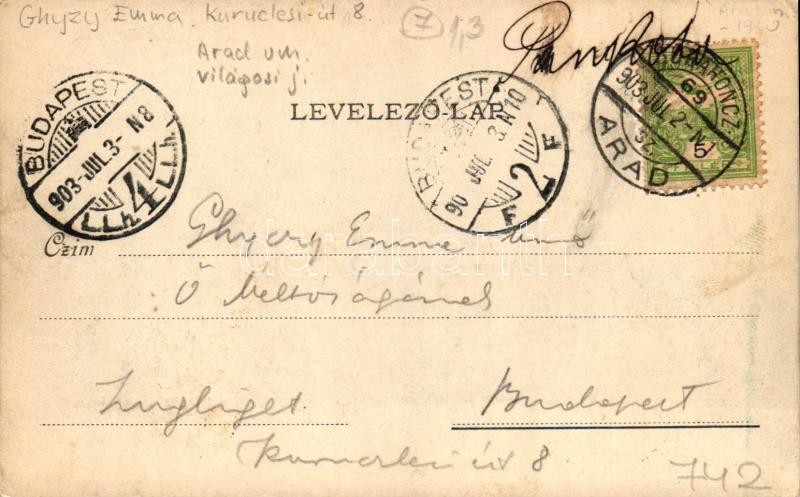 Ghyzy Emma. Kuruclesi-út 8.
7 1,3
Arad vm.
világosi j.
Pankota
LEVELEZŐ-LAP
BUDAPEST
903-JUL.3- N8
4
BUDAPEST
90 JUL. 3. N10
2
F F
903 JUL 2- N
69
ARAD
Czím Ghyczy Emma
Ő Méltóságának
Zugliget Budapest
út 8
742
darabanth